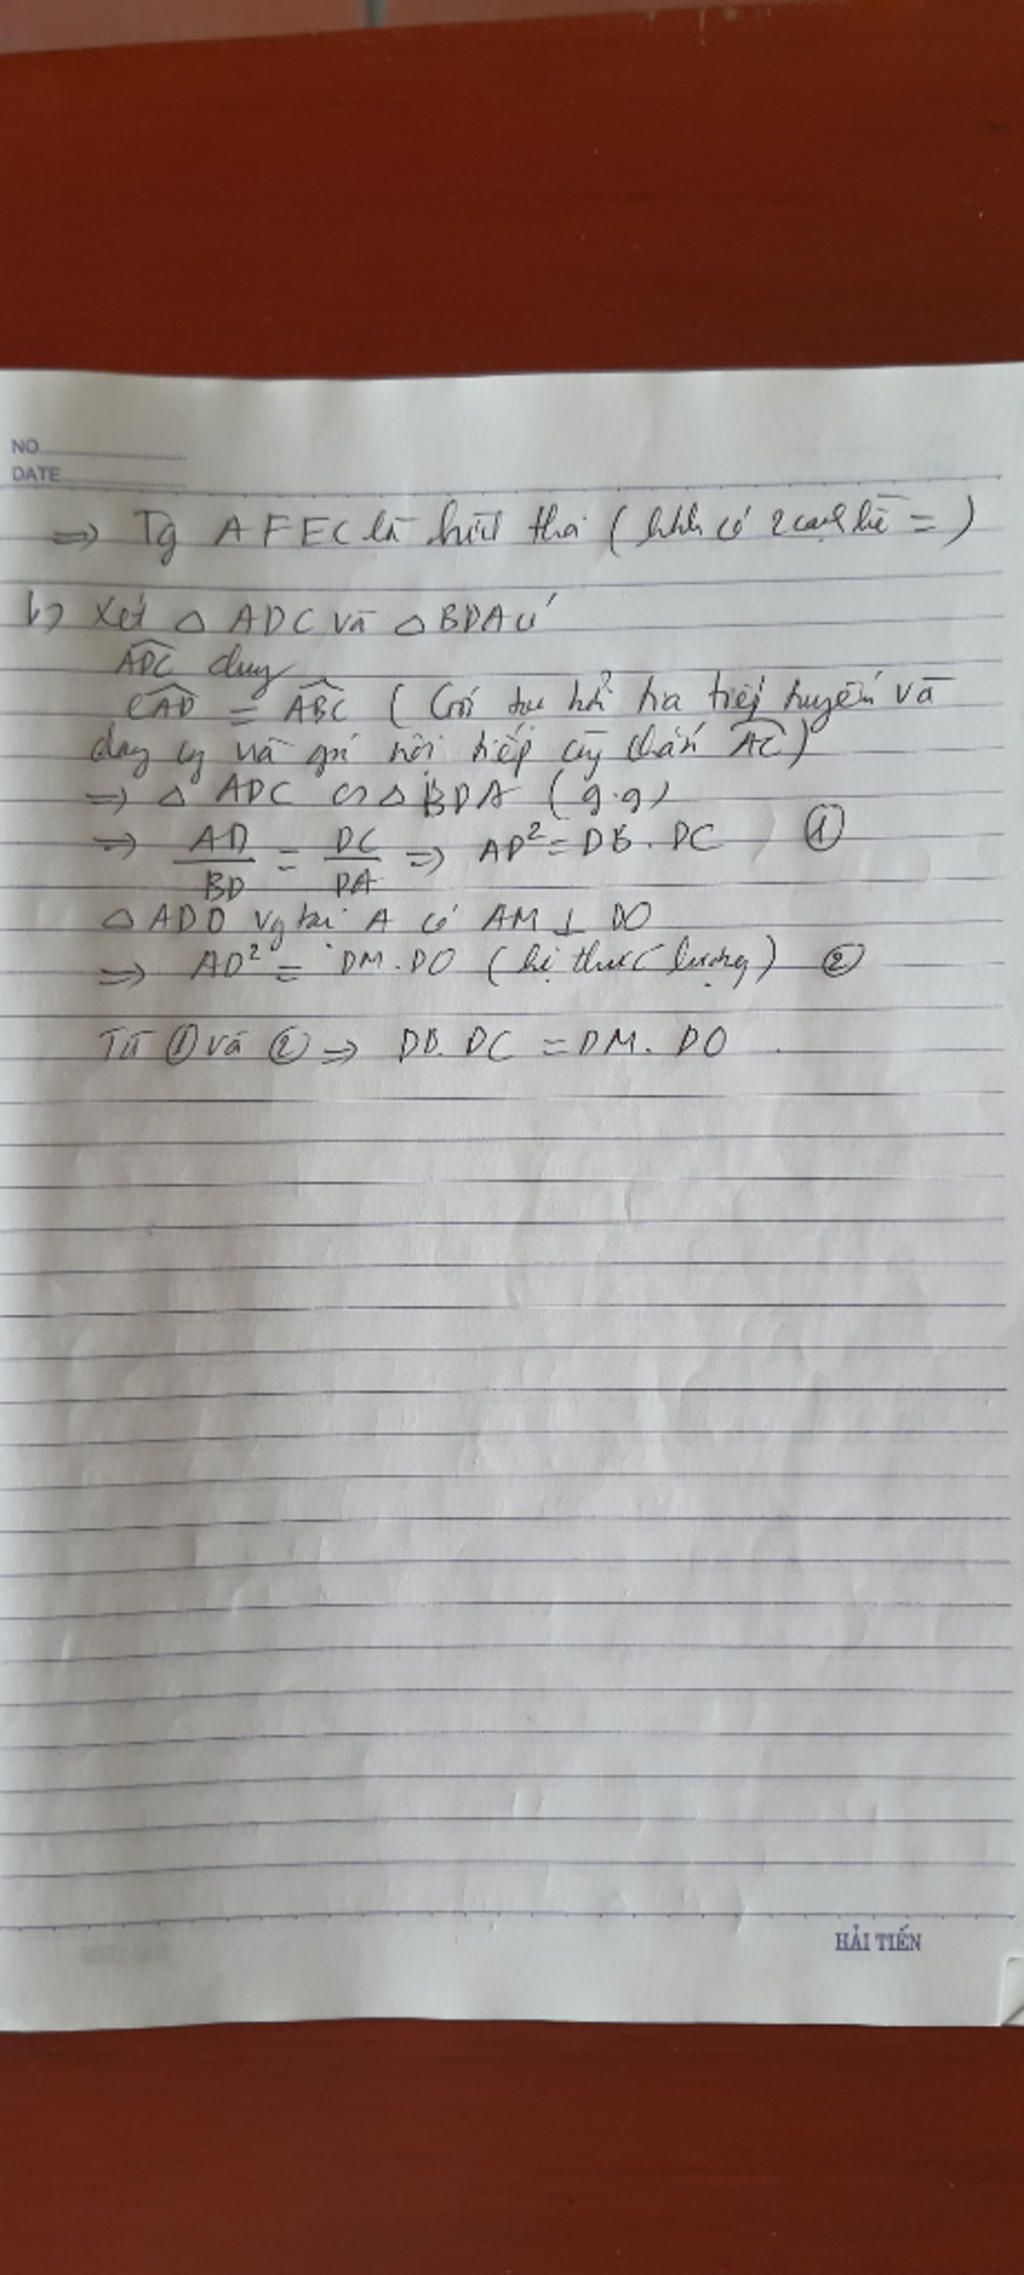 NO
DATE
⇒ Tg AFEC là hình thoi (hbh có 2 cạnh kề =)
b) Xét △ ADC và △ BDA có
ADC chung
CAD = ABC (Góc tạo bởi tia tiếp tuyến và
dây cg và góc nội tiếp cùng chắn AC)
⇒ △ ADC ∽ △ BDA (g.g)
⇒ AD/BD = DC/DA ⇒ AD² = DB. DC ①
△ ADO vg tại A có AM ⊥ DO
⇒ AD² = DM.DO (hệ thức lượng) ②
Từ ① và ② ⇒ DB. DC = DM. DO
HẢI TIẾN